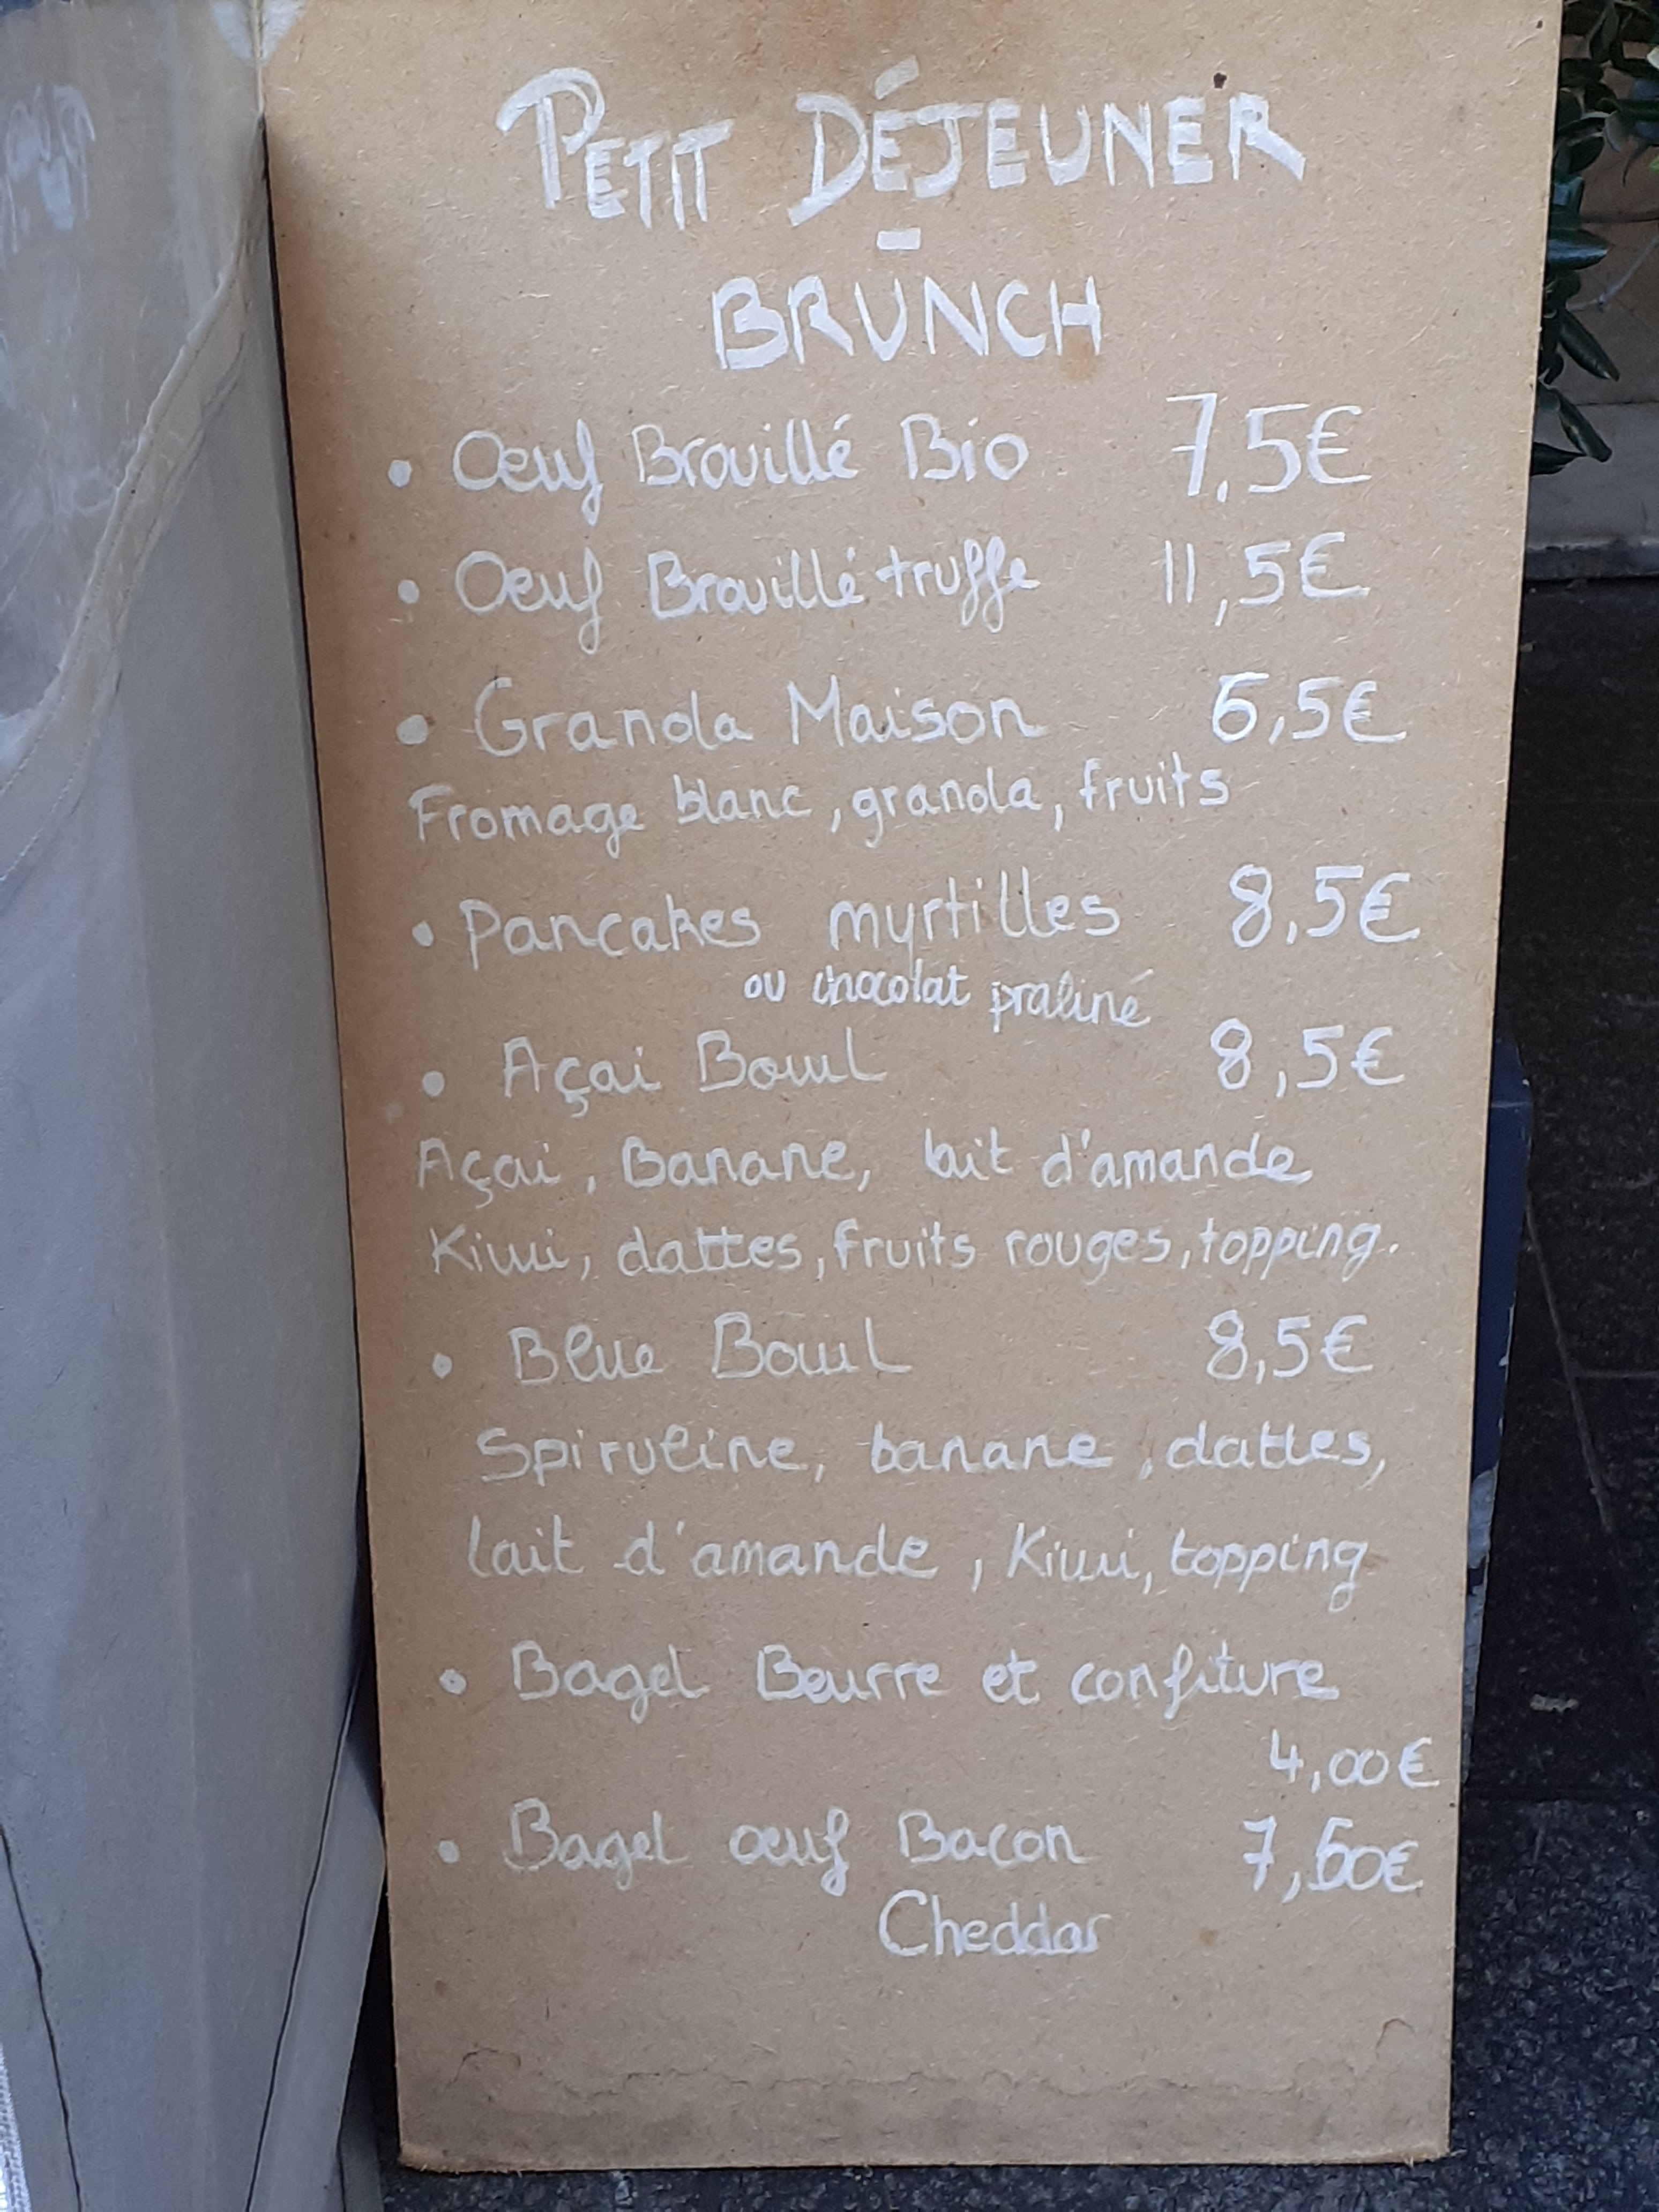 PETIT DÉJEUNER
-
BRUNCH
• Œuf Brouillé Bio 7,5€
• Oeuf Brouillé truffe 11,5€
• Granola Maison 6,5€
Fromage blanc, granola, fruits
• Pancakes myrtilles 8,5€
ou chocolat praliné
• Açai Bowl 8,5€
Açai, Banane, lait d'amande
Kiwi, dattes, fruits rouges, topping.
• Blue Bowl 8,5€
Spiruline, banane, dattes,
lait d'amande, Kiwi, topping
• Bagel Beurre et confiture
4,00€
• Bagel œuf Bacon 7,60€
Cheddar